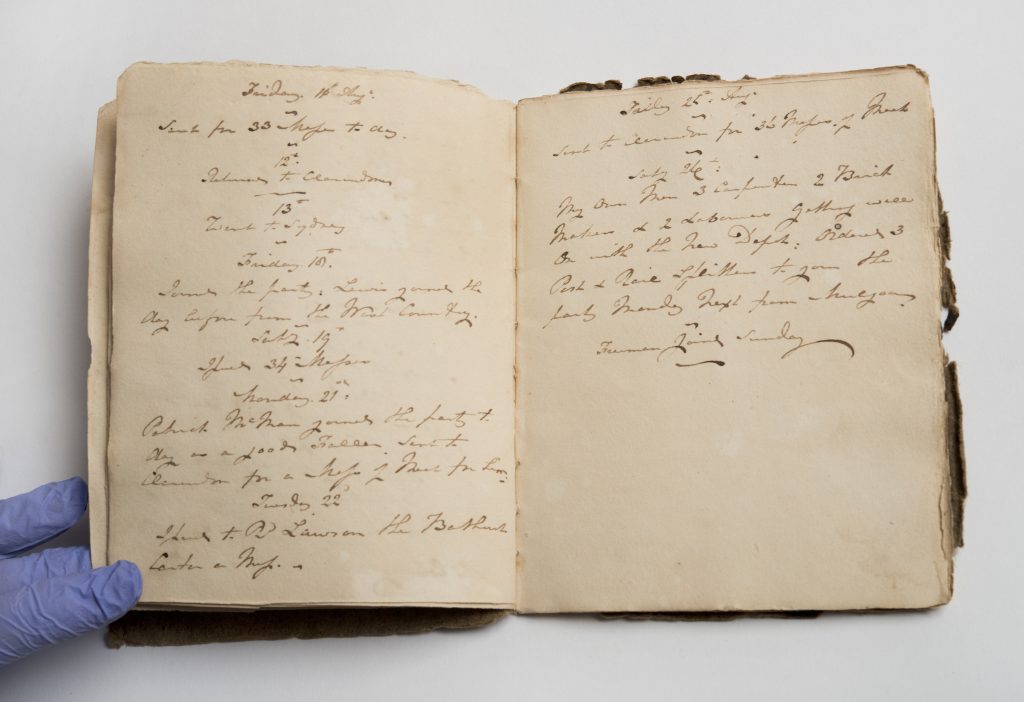 Friday. 11th Augt.
Sent for 33 Messes to day.
12th
Returned to Clarendon
13th
Went to Sydney
Friday. 18th.
Joined the party. Lewis joined the
day before from the West Country.
Saty. 19th
Issued 34 Messes
Monday. 21st
Patrick McMan joined the party to
day as a good Faller. Sent to
Clarendon for a Mess of Meat for him
Tuesday 22d
Issued to Lawson the Bathurst
Carter a Mess.
Friday 25th. Augt.
Sent to Clarendon for 36 Messes of Meat
Saty 26th:
My Own Men 3 Carpenters 2 Brick
Makers & 2 Labourers getting well
on with the New Depôt: Ordered 3
Post & Rail Splitters to join the
party Monday Next from Mulgoa
Freeman joined Sunday